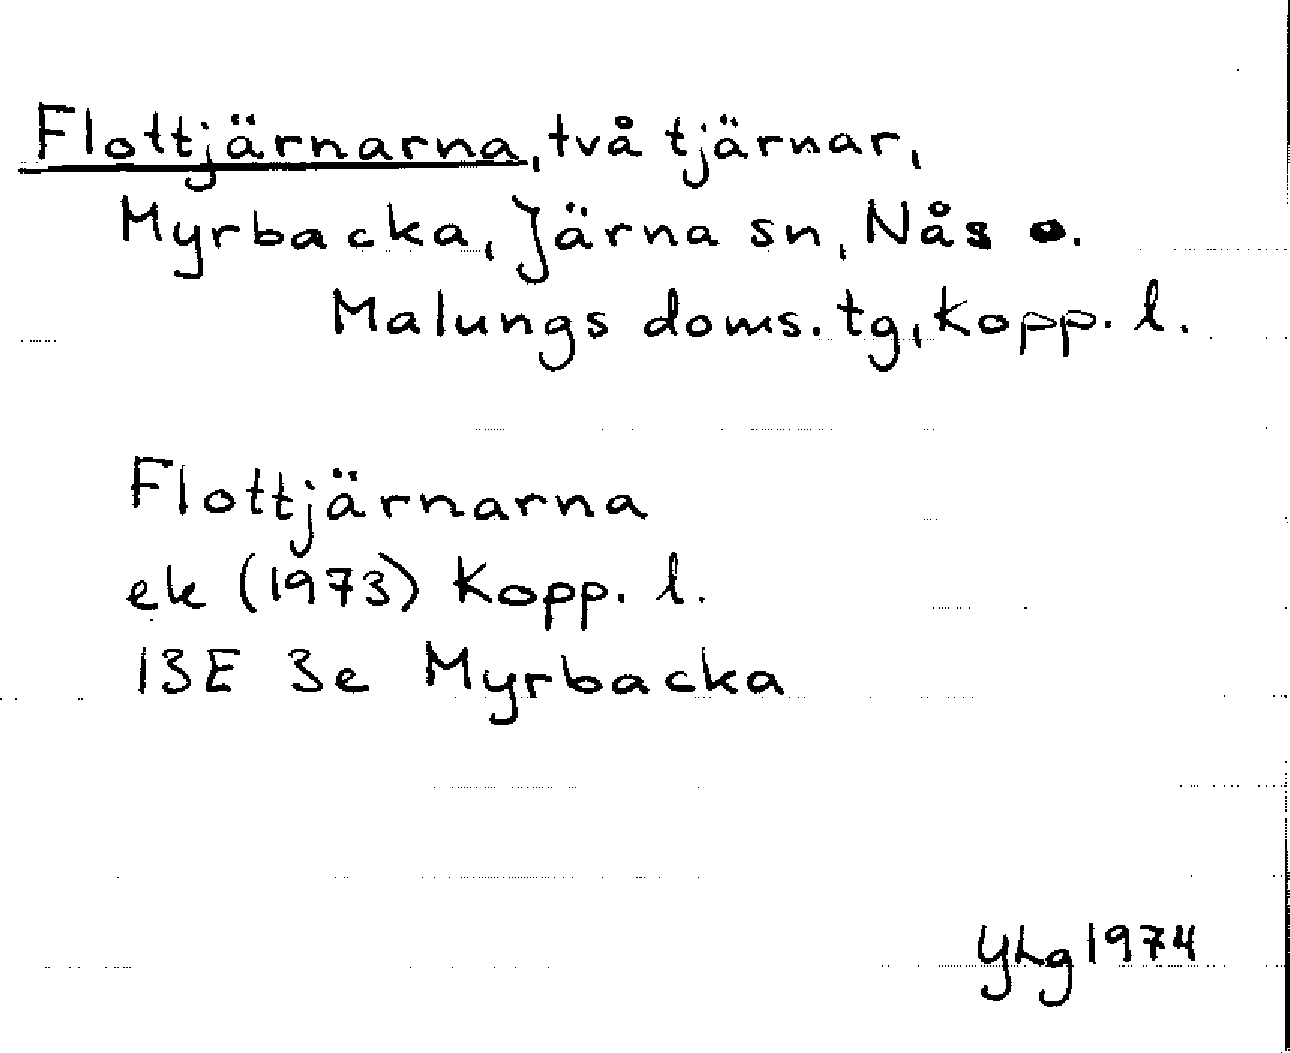 Flottjärnarna, två tjärnar,
Myrbacka, Järna sn, Nås o.
Malungs doms. tg, Kopp. l.
Flottjärnarna
ek (1973) Kopp. l.
13E 3e Myrbacka
YLg 1974